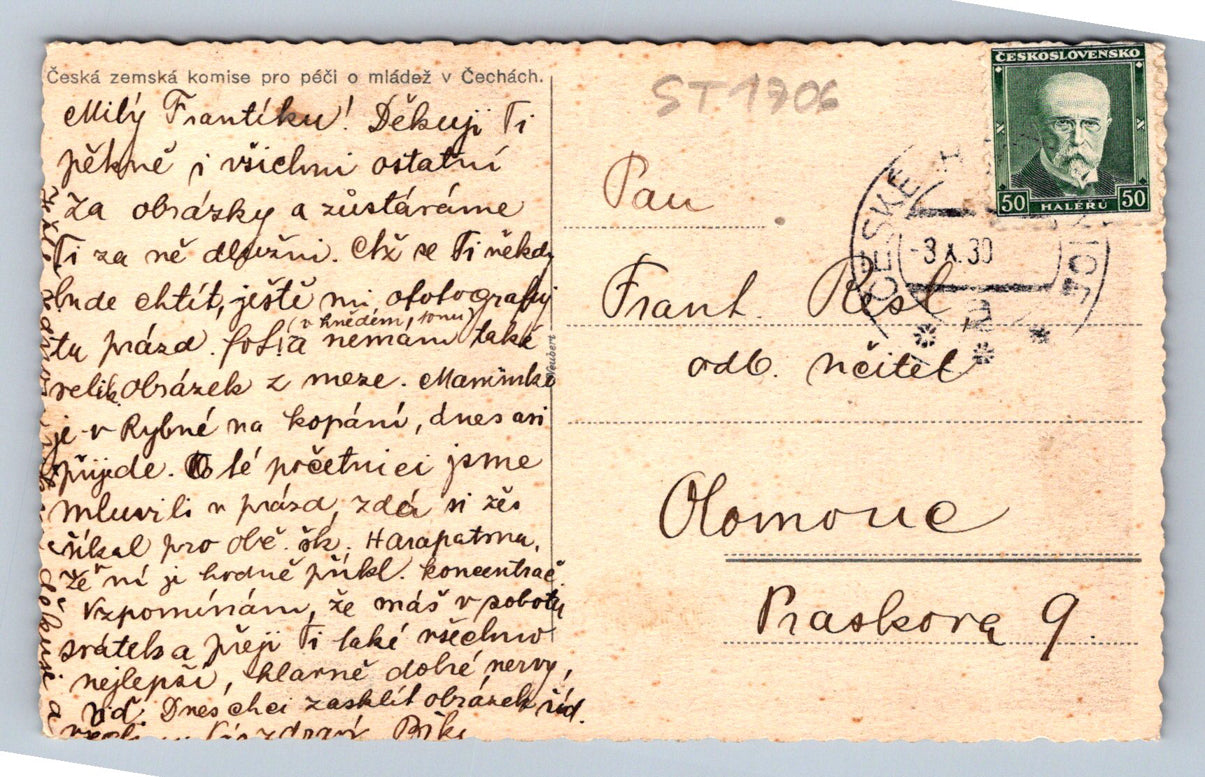 Česká zemská komise pro péči o mládež v Čechách.
Milý Frantíku! Děkuji Ti
pěkně i všichni ostatní
za obrázky a zůstáváme
Ti za ně dlužni. Až se Ti někdy
bude chtít, ještě mi ofotografuj
tu prázd.
(v hnědém tonu)
nemám také
velik. obrázek z meze. Maminka
je v Rybné na kopání, dnes asi
přijede. O té početnici jsme
mluvili v prázd, zdá si žes
říkal pro obě. šk. Harapatova,
že v ní je hodně příkl. koncentrač.
Vzpomínám, že máš v sobotu
svátek a přeji Ti také všechno
nejlepší, hlavně dobré nervy,
Dnes chci zasklít obrázek
zdraví
děkuji a
Neubert
ST 1706
ČESKOSLOVENSKO
50 HALÉŘŮ 50
ČESKÉ
-3.X.30
Pan
Frant. Resl
odb. učitel
Olomouc
Praskova 9.